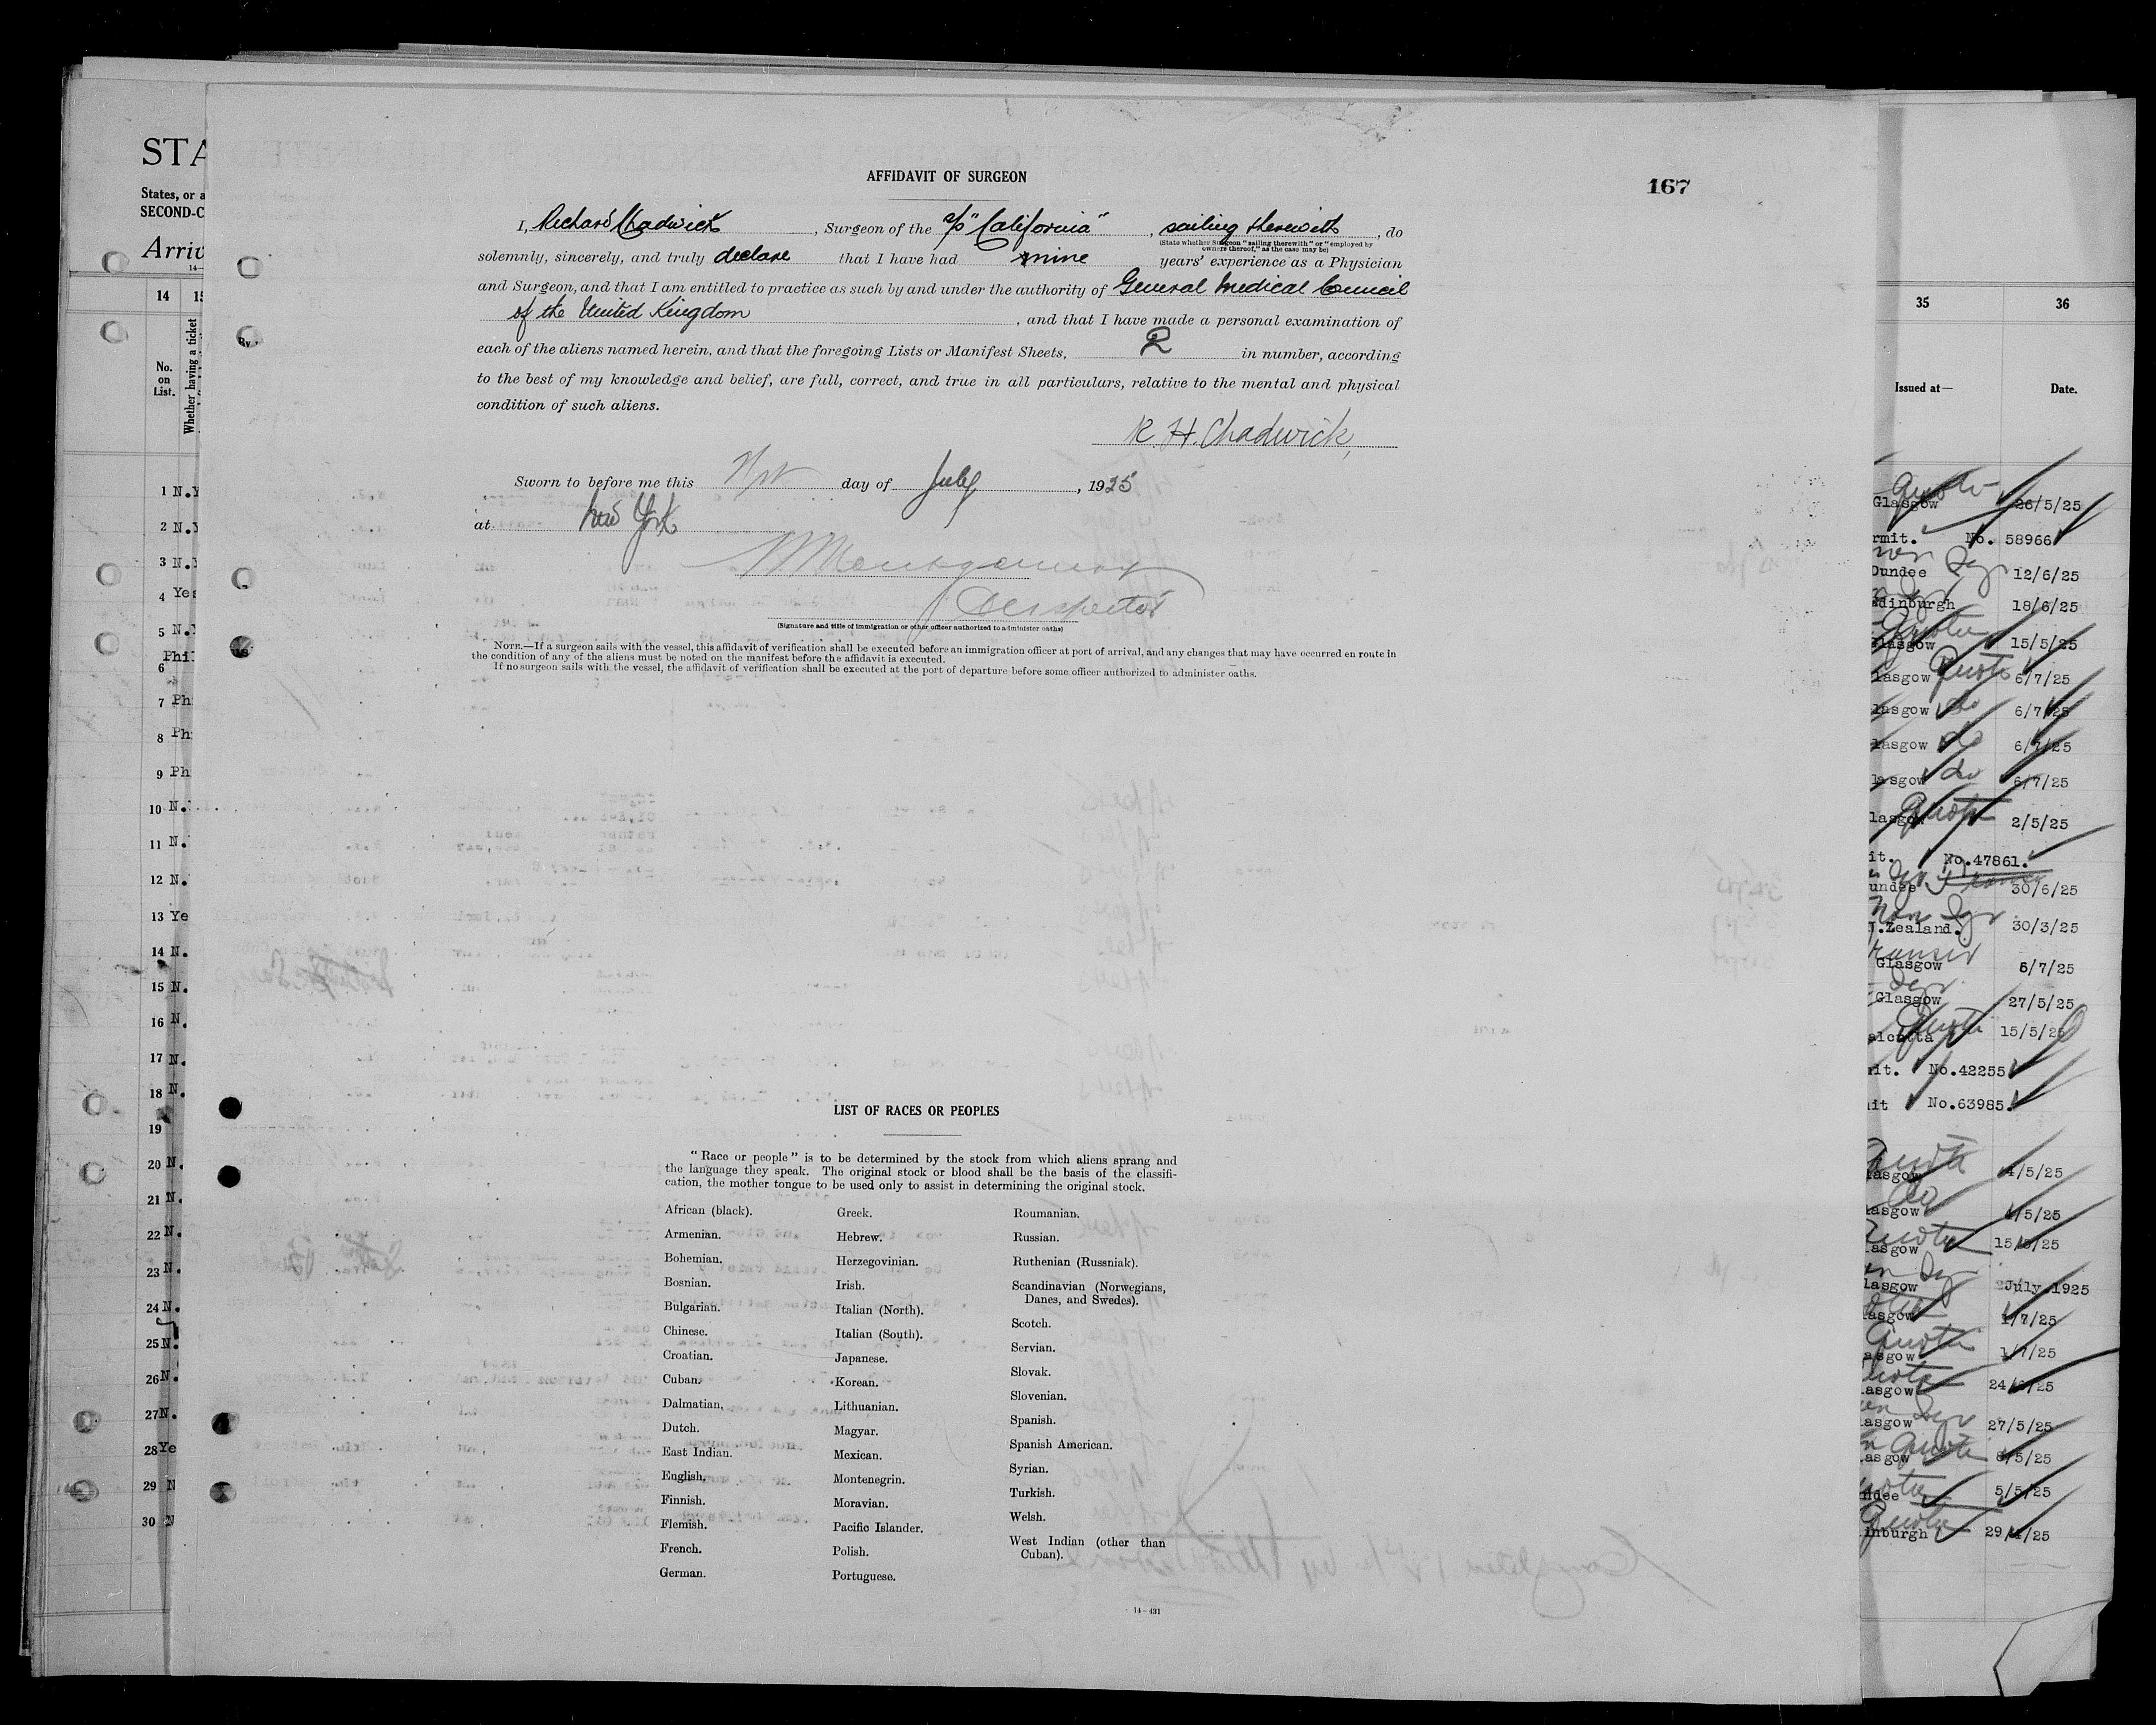 AFFIDAVIT OF SURGEON
167
I, Richard Chadwick, Surgeon of the s/s "California", sailing therewith, do
(State whether Surgeon "sailing therewith" or "employed by
owners thereof," as the case may be)
solemnly, sincerely, and truly declare that I have had nine years' experience as a Physician
and Surgeon, and that I am entitled to practice as such by and under the authority of General Medical Council
of the United Kingdom, and that I have made a personal examination of
each of the aliens named herein, and that the foregoing Lists or Manifest Sheets, 2 in number, according
to the best of my knowledge and belief, are full, correct, and true in all particulars, relative to the mental and physical
condition of such aliens.
R. H. Chadwick,
Sworn to before me this day of July, 1925
at New York
Inspector
(Signature and title of immigration or other officer authorized to administer oaths)
NOTE.—If a surgeon sails with the vessel, this affidavit of verification shall be executed before an immigration officer at port of arrival, and any changes that may have occurred en route in
the condition of any of the aliens must be noted on the manifest before the affidavit is executed.
If no surgeon sails with the vessel, the affidavit of verification shall be executed at the port of departure before some officer authorized to administer oaths.
LIST OF RACES OR PEOPLES
"Race or people" is to be determined by the stock from which aliens sprang and
the language they speak. The original stock or blood shall be the basis of the classifi-
cation, the mother tongue to be used only to assist in determining the original stock.
African (black).
Armenian.
Bohemian.
Bosnian.
Bulgarian.
Chinese.
Croatian.
Cuban.
Dalmatian.
Dutch.
East Indian.
English.
Finnish.
Flemish.
French.
German.
Greek.
Hebrew.
Herzegovinian.
Irish.
Italian (North).
Italian (South).
Japanese.
Korean.
Lithuanian.
Magyar.
Mexican.
Montenegrin.
Moravian.
Pacific Islander.
Polish.
Portuguese.
Roumanian.
Russian.
Ruthenian (Russniak).
Scandinavian (Norwegians,
Danes, and Swedes).
Scotch.
Servian.
Slovak.
Slovenian.
Spanish.
Spanish American.
Syrian.
Turkish.
Welsh.
West Indian (other than
Cuban).
14—431
STA
States, or a
SECOND-C
Arriv
14—
14 15
No.
on
List.
Whether having a ticket
1 N.Y
2 N.Y
3 N.Y
4 Yes
5 N.Y
Phil
6
7 Ph
8 Ph
9 Ph
10 N.
11 N.
12 N.
13 Ye
14 N.
15 N.
16 N.
17 N.
18 N.
19
20 N.
21 N.
22 N.
23 N.
24 N.
25 N.
26 N.
27 N.
28 Ye
29 N
30 N
35 36
Issued at— Date.
Quota
Glasgow 26/5/25
rmit. No. 58966
Dundee 12/6/25
Edinburgh 18/6/25
Quota
Glasgow 15/5/25
lasgow Quota 6/7/25
lasgow do 6/7/25
lasgow do 6/7/25
lasgow do 6/7/25
lasgow Quota 2/5/25
it. No.47861.
undee 30/6/25
Non
N.Zealand. 30/3/25
Glasgow 6/7/25
Glasgow 27/5/25
Quota
alcutta 15/5/25
it. No.42255
it No.63985.
Quota
lasgow 4/5/25
do
lasgow /5/25
Quota
lasgow 15/5/25
lasgow July 1925
lasgow 1/7/25
Quota
asgow 1/7/25
asgow 24/ /25
asgow 27/5/25
Quota
asgow 6/5/25
ndee 5/5/25
Quota
inburgh 29/4/25